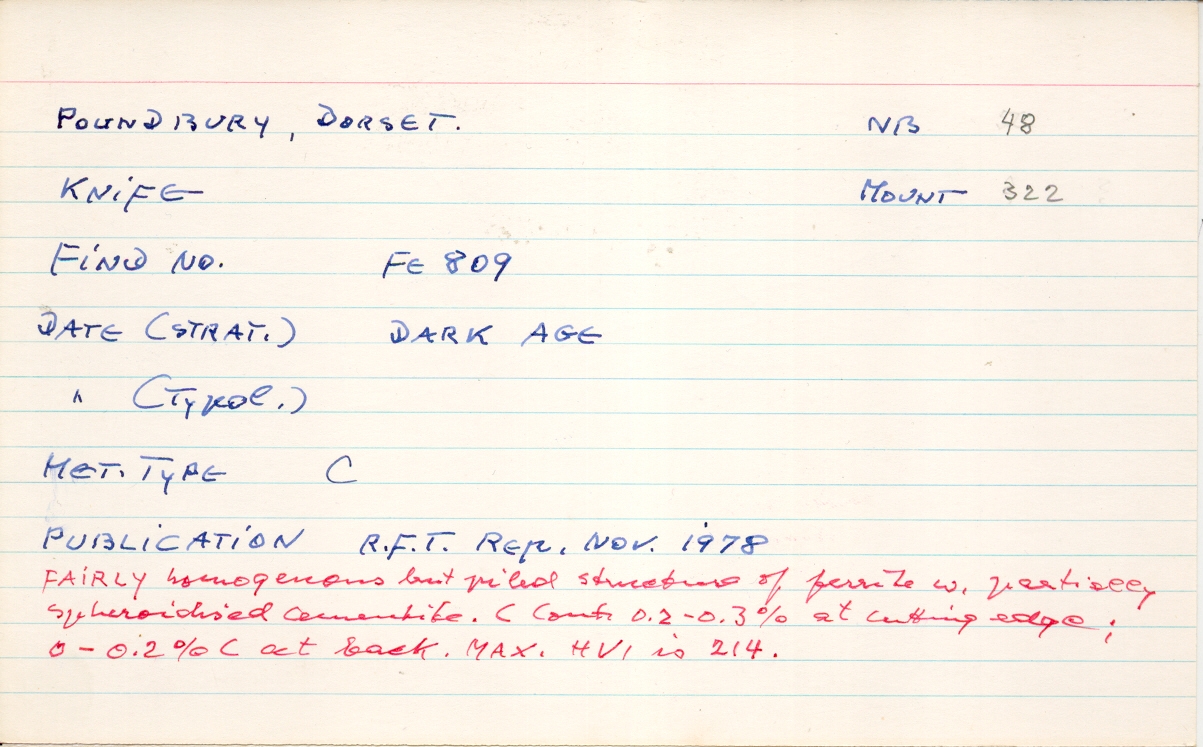 POUNDBURY, DORSET. NB 48
KNiFE MOUNT 322
FiND NO. FE 809
DATE (STRAT.) DARK AGE
" (Typol.)
MET. TYPE C
PUBLiCATiON R.F.T. REp. NOV. 1978
FAIRLY homogenous but piled structure of ferrite w. partially
spheroidised cementite. C Cont. 0.2-0.3% at cutting edge;
0-0.2% C at back. MAX. HV1 is 214.